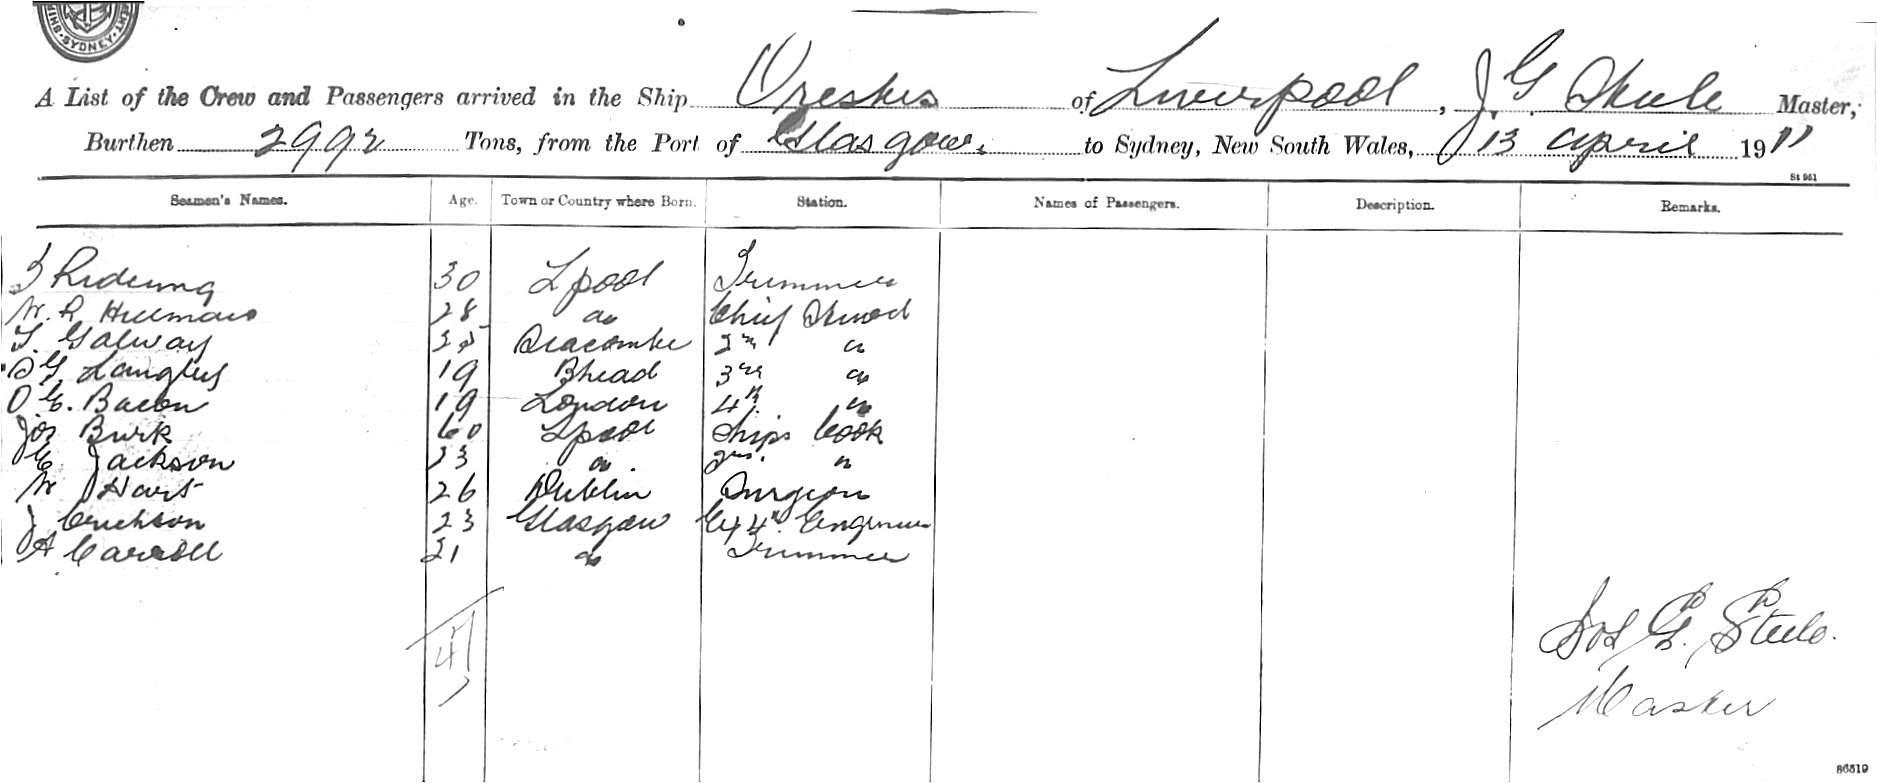 SYDNEY
A List of the Crew and Passengers arrived in the Ship Orestes of Liverpool, J. G. Steele Master,
Burthen 2992 Tons, from the Port of Glasgow. to Sydney, New South Wales, 13 April 1911
St 951
Seamen's Names. Age. Town or Country where Born. Station. Names of Passengers. Description. Remarks.
Rideing 30 Lpool Trimmer
W. R. 28 do Chief Steward
T. Galway Seacombe 2nd do
G Langley 19 Bhead 3rd do
O G. Bacon 19 London 4th do
Jos Burk 60 Lpool Ships Cook
C. Jackson 23 do do
W Hart 26 Dublin Surgeon
J Erickson 23 Glasgow 4th Engineer
A Carroll 21 do Trimmer
Jos G. Steele.
Master
86519